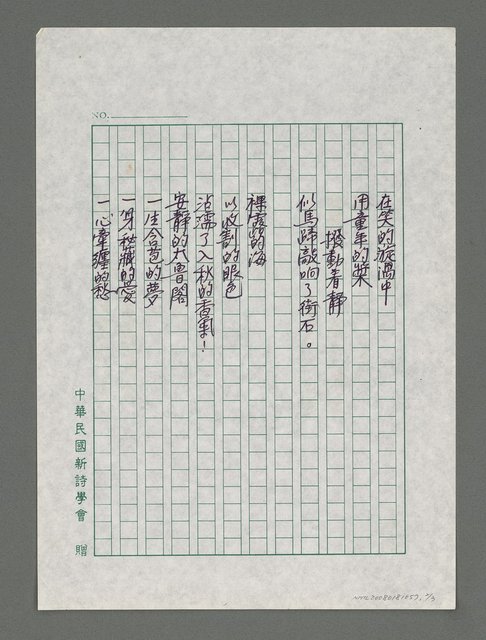 NO.
在笑的漩渦中
用童年的槳
撥動着靜
似馬蹄敲响了街石。
裸露的海
以收割的眼色
沾濡了入秋的香氣！
安靜的大魯閣
一生含苞的夢
一身秘藏的愛
一心牽纏的愁
中華民國新詩學會 贈